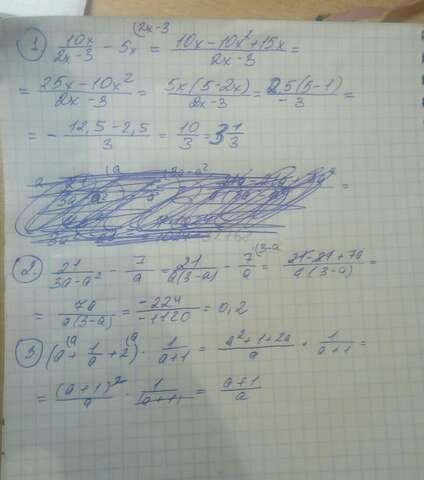 1) 10x/(2x-3) - 5x (2x-3 = (10x-10x²+15x)/(2x-3) =
= (25x-10x²)/(2x-3) = 5x(5-2x)/(2x-3) = 2,5(5-1)/-3 =
= - (12,5-2,5)/3 = 10/3 = 3 1/3
2. 21/(3a-a²) - 7/a = 21/(a(3-a)) - 7/a (3-a = (21-21+7a)/(a(3-a)) =
= 7a/(a(3-a)) = -224/-1120 = 0,2
3) (a (a + 1/a + 2 (a) · 1/(a+1) = (a²+1+2a)/a · 1/(a+1) =
= (a+1)²/a · 1/(a+1) = (a+1)/a